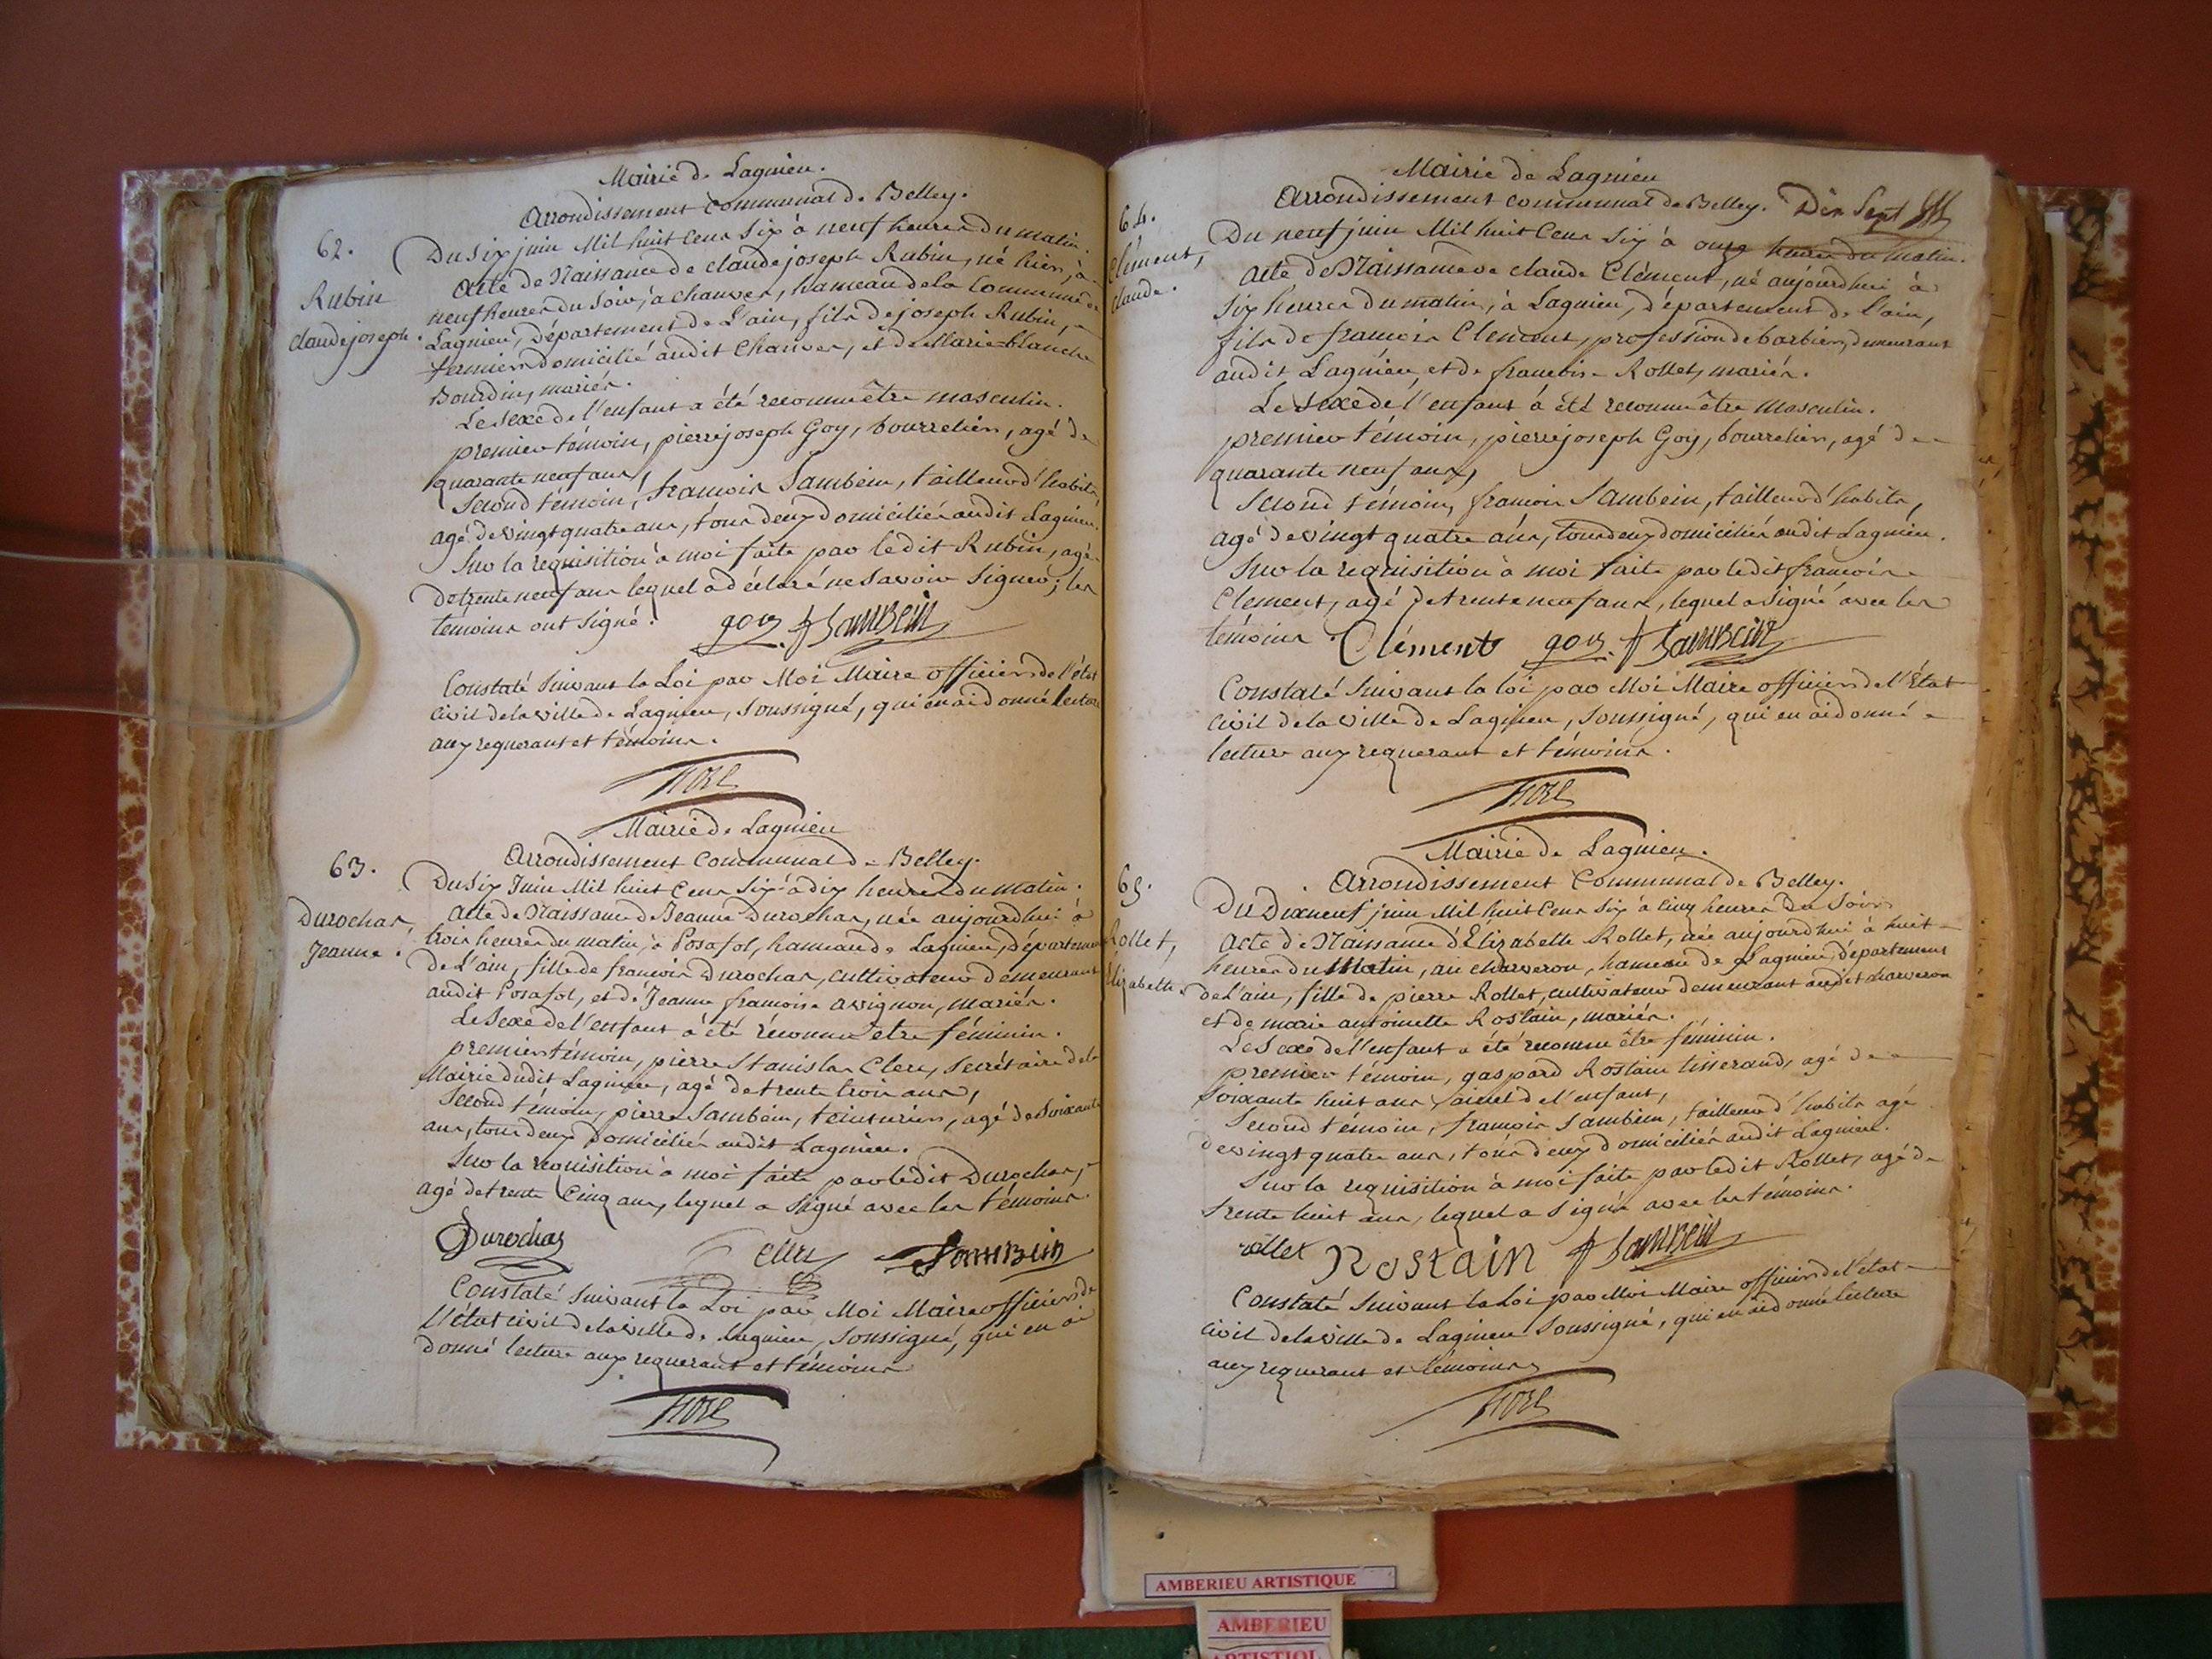 Mairie de Lagnieu.
Arrondissement communal de Belley.
62.
Rubin
claude joseph.
Du six juin Mil huit Cens Six à neuf heures du matin.
Acte de Naissance de claude joseph Rubin, né hier, à
neuf heures du Soir, à chanves, hameau de la Commune de
Lagnieu, Département de L'ain, fils de joseph Rubin,
fermier domicilié audit Chanves, et de Marie blanche
Bourdin, mariés.
Le sexe de l'enfant a été reconnu être masculin.
premier témoin, pierre joseph Goy, bourrelier, agé de
quarante neuf ans,
Second témoin, francois Sambein, tailleur d'habits,
agé de vingt quatre ans, tous deux domiciliés audit Lagnieu.
Sur la requisition à moi faite par ledit Rubin, agé
de trente neuf ans lequel a déclaré ne Savoir Signer; les
témoins ont signé. goy f Sambein
Constaté Suivant la Loi par Moi Maire officier de l'état
civil de la ville de Lagnieu, soussigné, qui en ai donné lecture
aux requerant et témoins.
Mairie de Lagnieu
Arrondissement Communal de Belley.
63.
Durochas,
Jeanne.
Du Six Juin Mil huit Cens Six à dix heures du matin.
Acte de Naissance de Jeanne Durochas, née aujourdhui à
trois heures du matin, à Posafol, hameau de Lagnieu, département
de L'ain, fille de francois Durochas, cultivateur demeurant
audit Posafol, et de Jeanne francoise avignon, mariés.
Le Sexe de l'enfant a été reconnu être féminin.
premier témoin, pierre Stanislas Clerc, Secrétaire de la
Mairie dudit Lagnieu, agé de trente trois ans,
Second témoin, pierre Sambein, teinturier, agé de Soixante
ans, tous deux Domiciliés audit Lagnieu.
Sur la requisition à moi faite par ledit Durochas,
agé de trente Cinq ans, lequel a signé avec les témoins.
Durochas Clerc Sambein
Constaté suivant la Loi par Moi Maire officier de
l'état civil de la ville de Lagnieu, soussigné, qui en ai
donné lecture aux requerant et témoins
Mairie de Lagnieu
Arrondissement communal de Belley. Dix Sept
64.
Clément,
claude.
Du neuf juin Mil huit Cens Six à onze heures du matin.
Acte de Naissance de claude Clément, né aujourdhui à
Six heures du matin, à Lagnieu, département de l'ain,
fils de francois Clement, profession de barbier, demeurant
audit Lagnieu, et de francoise Rollet, mariés.
Le Sexe de l'enfant a été reconnu être Masculin.
premier témoin, pierre joseph Goy, bourrelier, agé de
quarante neuf ans,
Second témoin, francois Sambein, tailleur d'habits,
agé de vingt quatre ans, tous deux domiciliés audit Lagnieu.
Sur la requisition à moi faite par ledit francois
Clement, agé de trente neuf ans, lequel a signé avec les
témoins Clément goy f Sambein
Constaté Suivant la loi par Moi Maire officier de l'État
civil de la ville de Lagnieu, soussigné, qui en ai donné
lecture aux requerant et témoins.
Mairie de Lagnieu.
Arrondissement Communal de Belley.
65.
Rollet,
Élizabelle.
Du Dixneuf juin Mil huit Cens Six à Cinq heures du Soir
Acte de Naissance d'Élizabelle Rollet, née aujourdhui à huit
heures du Matin, au charveron, hameau de Lagnieu, département
de L'ain, fille de pierre Rollet, cultivateur demeurant audit charveron
et de marie antoinette Rostain, mariés.
Le Sexe de l'enfant a été reconnu être féminin.
premier témoin, gaspard Rostain tisserand, agé de
Soixante huit ans, aieul de l'enfant,
Second témoin, francois Sambein, tailleur d'habits agé
de vingt quatre ans, tous deux domiciliés audit Lagnieu.
Sur la requisition à moi faite par ledit Rollet, agé de
trente huit ans, lequel a signé avec les témoins.
rollet Rostain f Sambein
Constaté Suivant la Loi par Moi Maire officier de l'état
civil de la ville de Lagnieu Soussigné, qui en ai donné lecture
aux requerant et témoins
AMBERIEU ARTISTIQUE
AMBERIEU